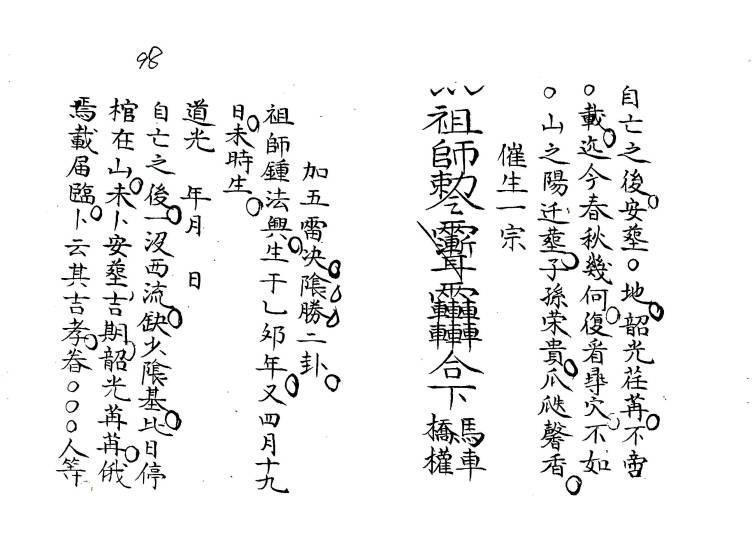 98
自亡之後安塟○地韶光荏苒不啻
○載迄今春秋幾何復看尋穴不如
○山之陽迁塟子孫荣貴瓜瓞馨香
催生一宗
祖師勅令
合下
馬車
橋櫂
加五雷决陰勝二卦
祖師鍾法興生于乙夘年又四月十九
日未時生
道光 年月 日
自亡之後一没西流缺少陰基比日停
棺在山未卜安塟吉期韶光苒苒俄
焉載届臨卜云其吉孝眷○○○人等